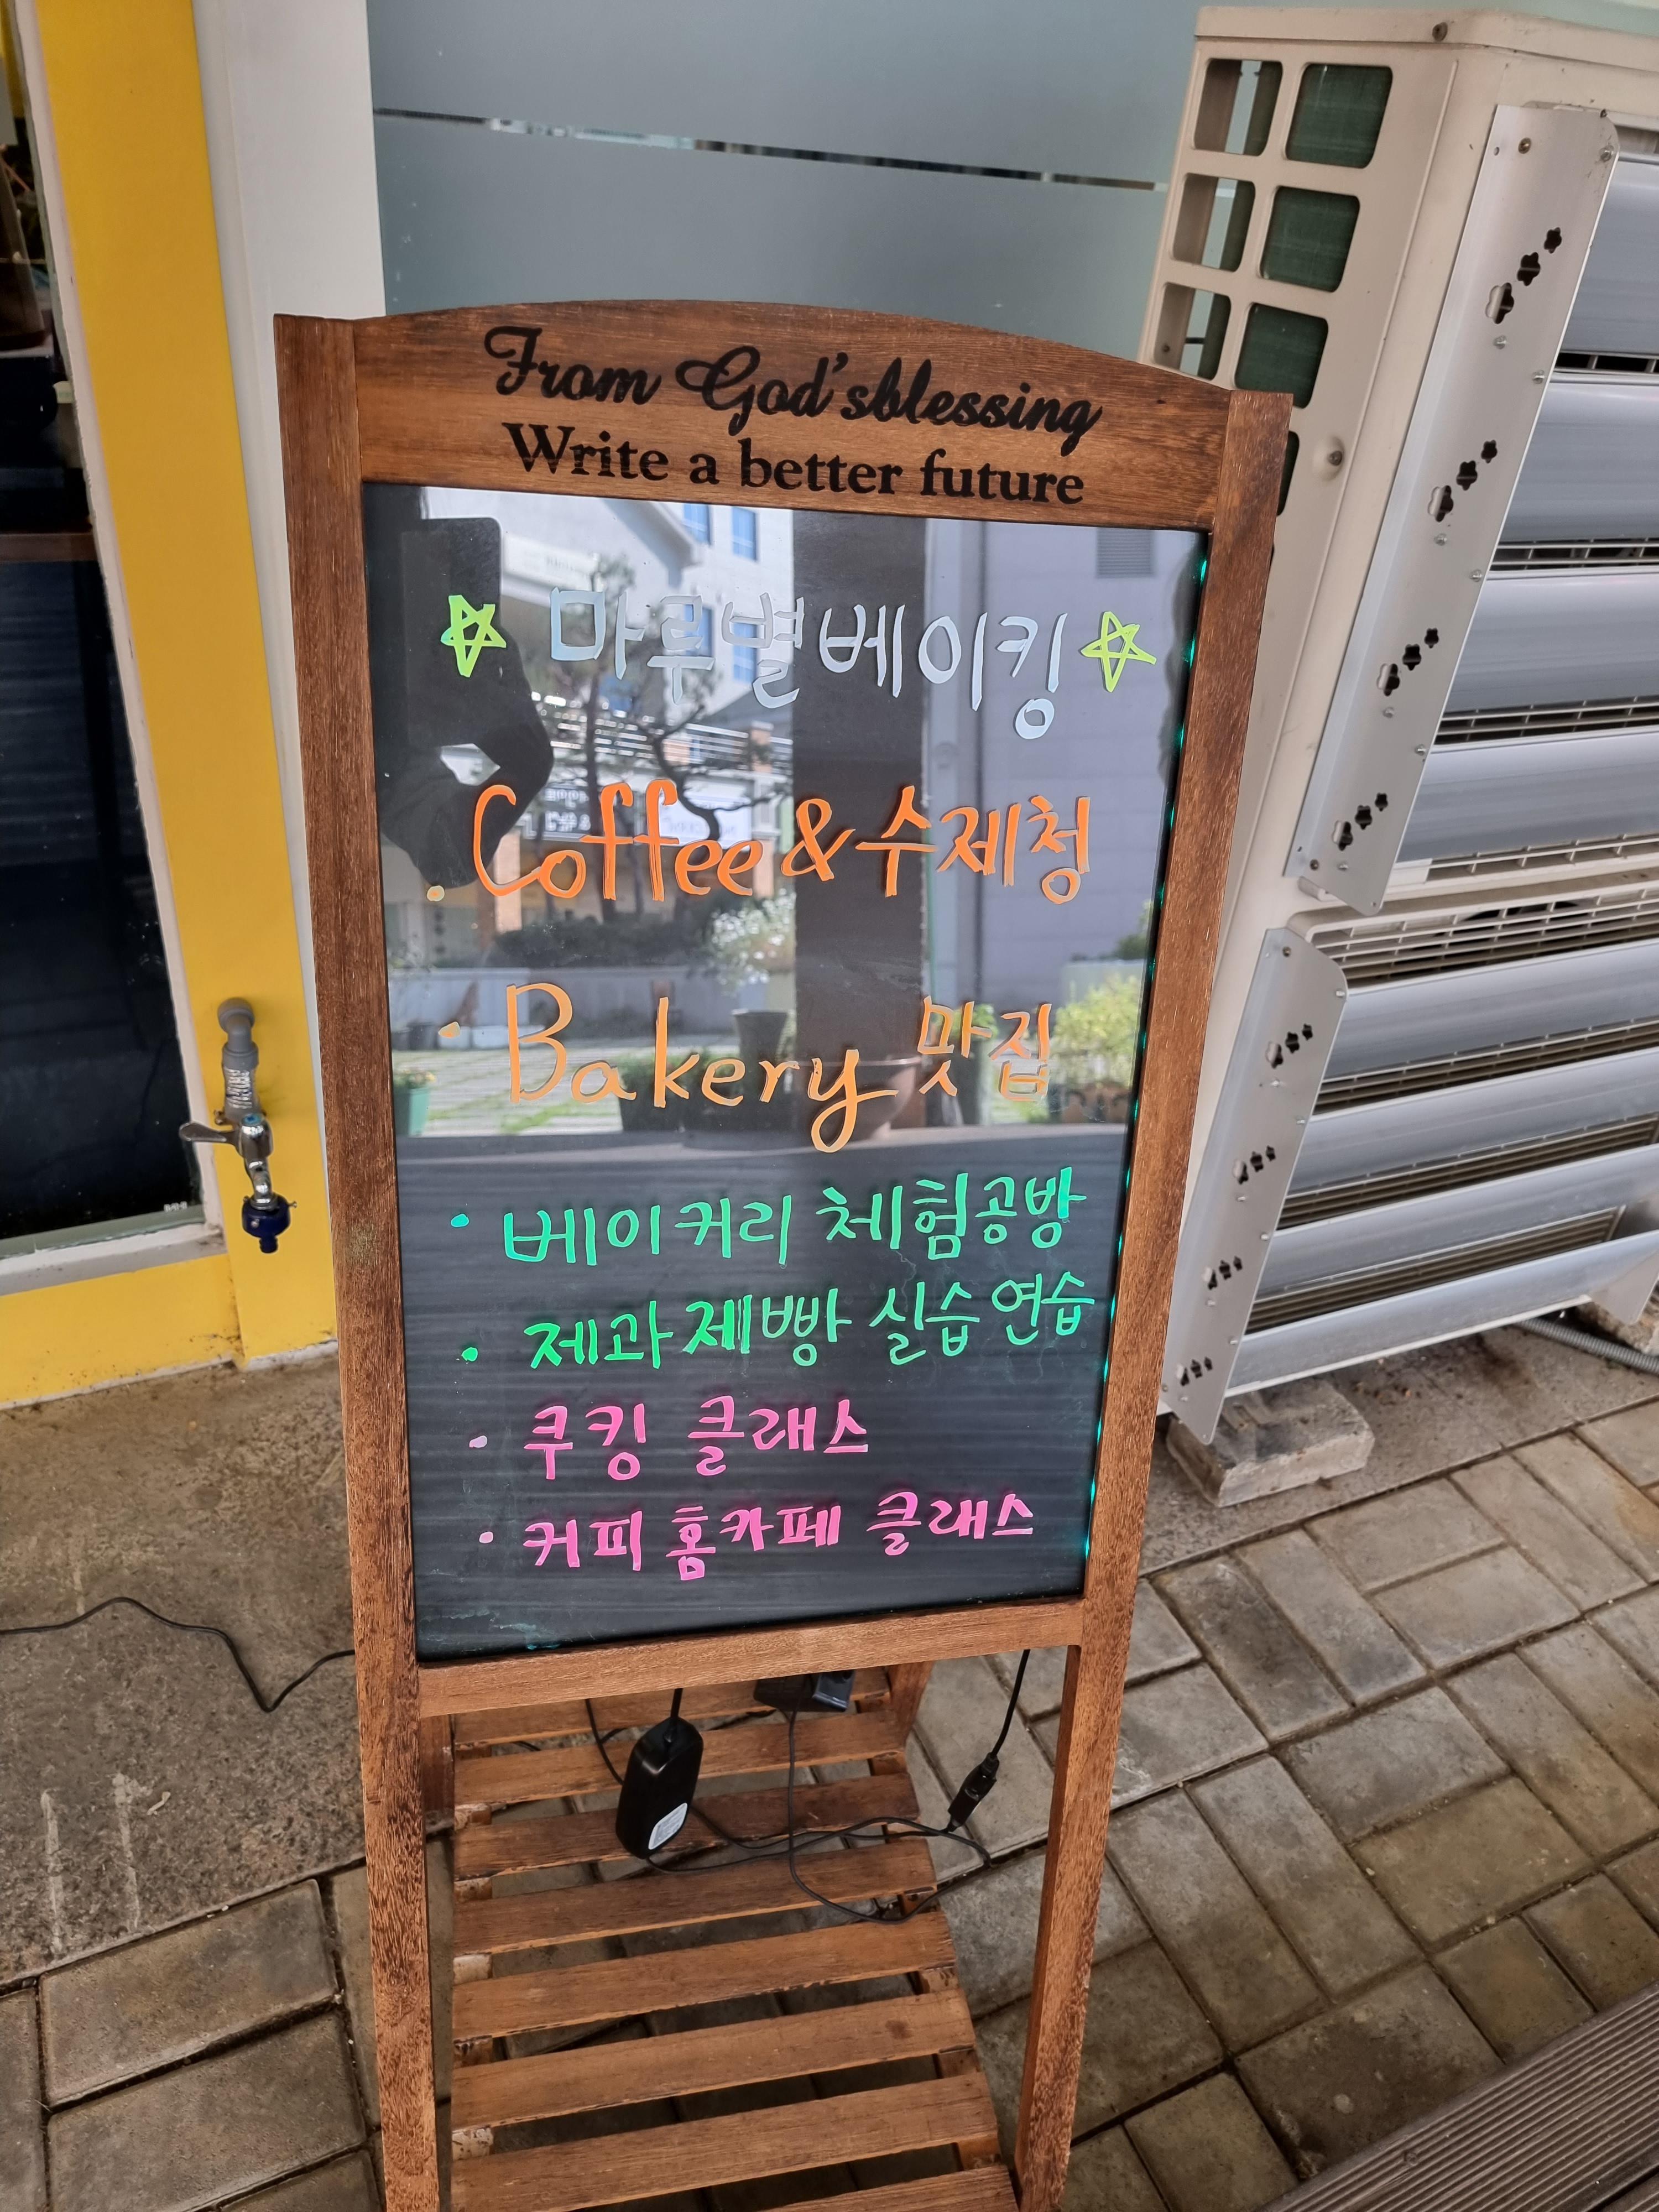 From God'sblessing
Write a better future
☆ 마루별베이킹 ☆
· Coffee & 수제청
· Bakery 맛집
· 베이커리 체험공방
· 제과제빵 실습연습
· 쿠킹 클래스
· 커피홈카페 클래스